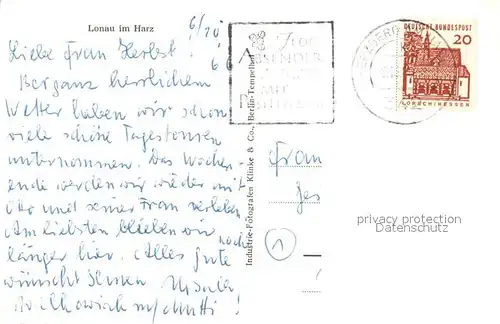 Lonau im Harz
6/10
66
Liebe Frau Herbst!
Bei ganz herrlichem
Wetter haben wir schon
viele schöne Tagestouren
unternommen. Das Wochen-
ende werden wir wieder mit
und seiner Frau verleben
Am liebsten blieben wir noch
länger hier. Alles gute
wünscht Ihnen Ursula
Mutti!
Industrie-Fotografen Klinke & Co., Berlin-Tempelhof
ABSENDER
MIT
DEUTSCHE BUNDESPOST
20
LORSCH/HESSEN
Frau
1
privacy protection
Datenschutz